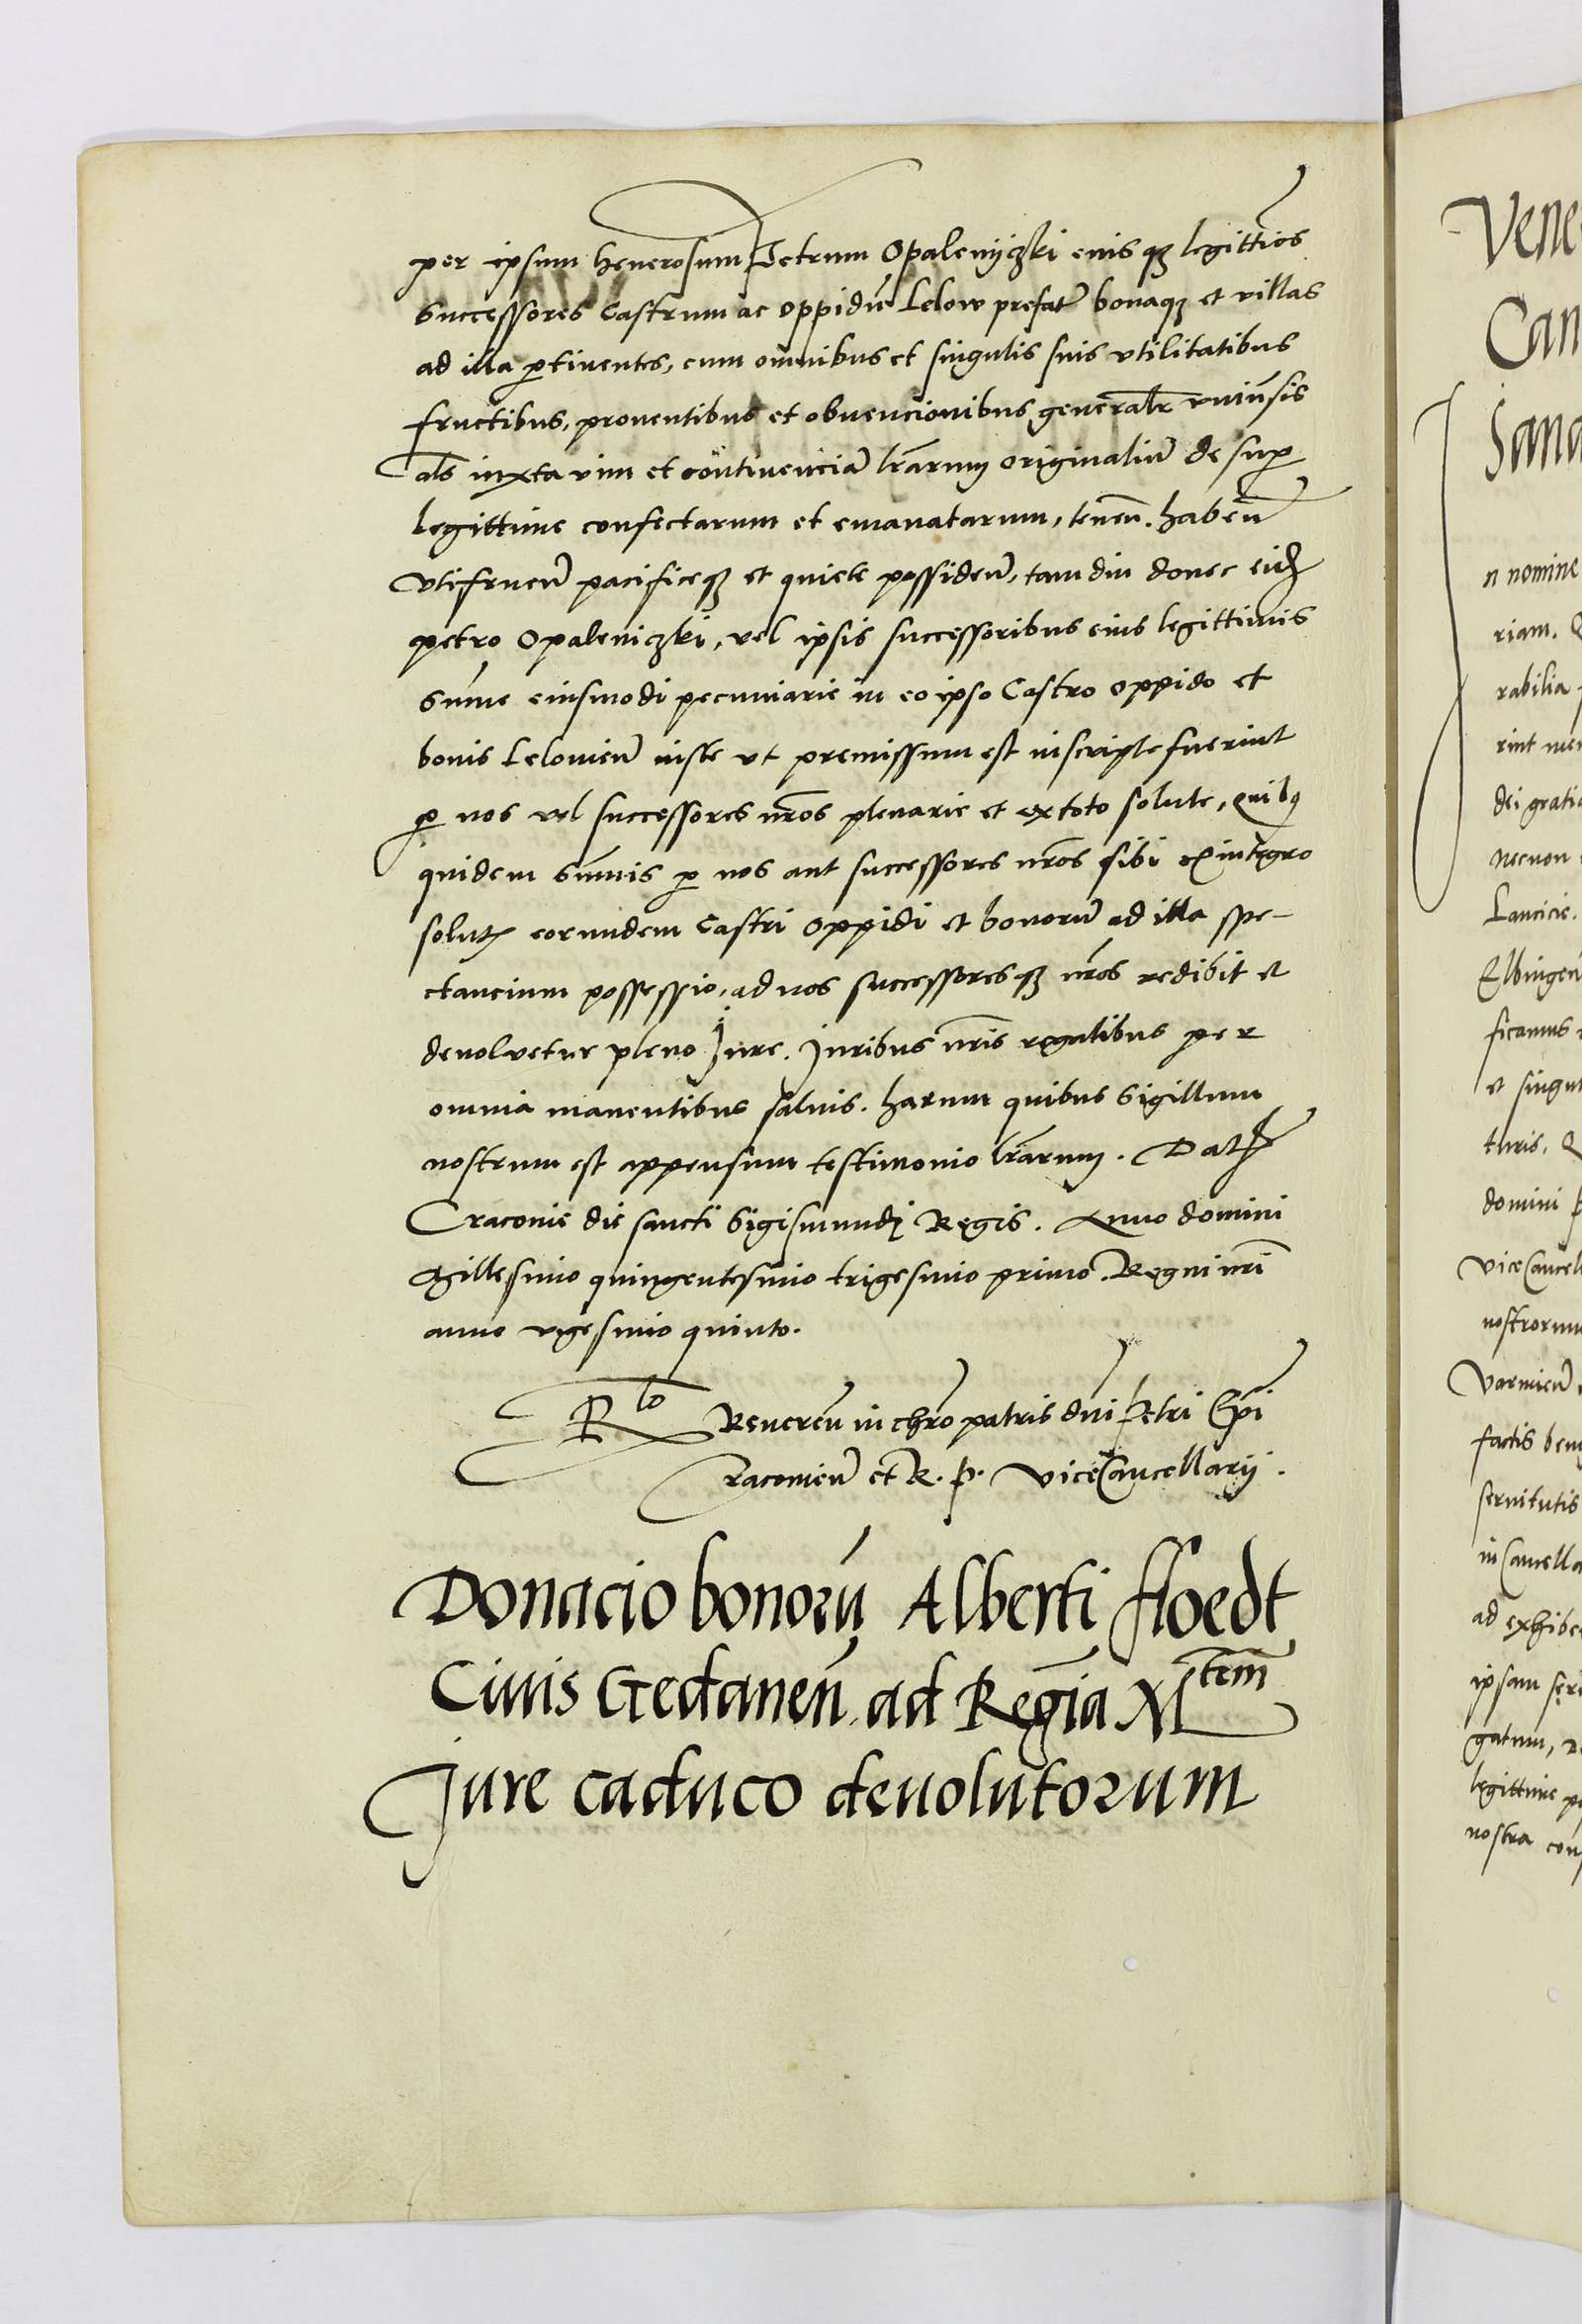 per ipsum Generosum Petrum Opalenyczki eiusqꝫ legittiōs
Successores Castrum ac oppidū Lelow prefat̄ bonaqꝫ et villas
ad illa ꝑtinentes, cum omnibus et singulis suis vtilitatibus
fructibus, prouentibus et obuencionibus generalr̄ vniūsis
als̄ iuxta vim et cōtinenciā lr̄arum originaliū de suꝑ
legittime confectarum et emanatarum, teneñ. habeñ
Vtifrueñ pacificeqꝫ et quiete possideñ, tam diu donec eidꝫ
petro Opaleniczki, vel ipsis successoribus eius legittimis
Sūme eiusmodi pecuniarie in eo ipso Castro oppido et
bonis Lelouieñ iuste vt premissum est inscripte fuerint
ꝑ nos vel successores nr̄os plenarie et ex toto solute, quibꝰ
quidem Sūmis ꝑ nos aut successores nr̄os sibi ex integro
solut̄ eorundem Castri Oppidi et bonorū ad illa spe-
ctancium possessio, ad nos successoresqꝫ nr̄os redibit et
deuoluetur pleno Jure. Juribus nr̄is regalibus per
omnia manentibus saluis. harum quibus Sigillum
nostrum est appensum testimonio lr̄arum. Dat̄
Cracouie die sancti Sigismundi Regis. Anno domini
Millesimo quingentesimo trigesimo primo. Regni nr̄i
anno vigesimo quinto.
Rlo Reuereñ in chr̄o patris dn̄i Petri Ep̄i
Cracouieñ et R. P. ViceCancellarij.
Donacio bonorū Alberti floedt
Ciuis Gedaneñ. ad Regiā Mtem
Jure caduco deuolutorum
Vene
Can
Sand
n nomine
riam. Q
rabilia
rint
dei gratia
necnon
Lancicie.
Elbingeñ
ficamus
et singul
turis. Q
domini P
ViceCancell
nostrorum
Varmieñ
factis
seruitutis
in Cancella
ad exhibe
ipsam sere
gatum, re
legittime p
nostra con